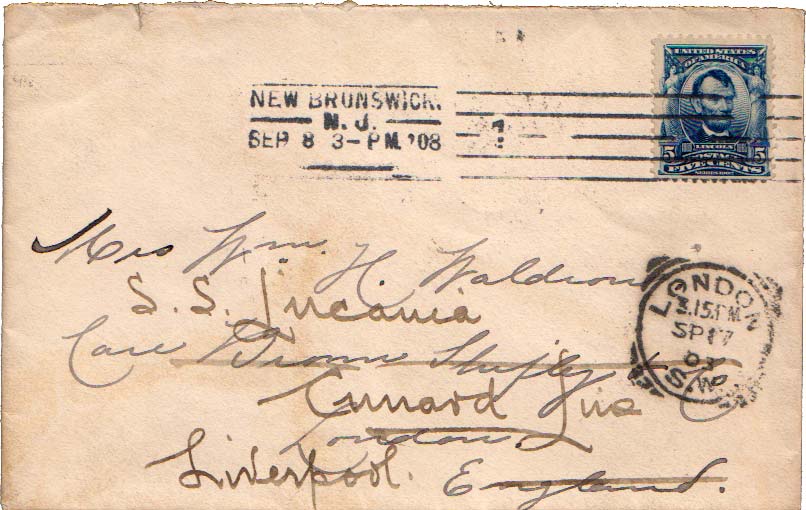 UNITED STATES
OF AMERICA
LINCOLN
5 POSTAGE 5
FIVE CENTS
SERIES 1902
NEW BRUNSWICK,
N. J.
SEP 8 3-PM '08
1
Mrs Wm. H. Waldron
S. S. Lucania
Care Brown Shipley & Co
Cunard Line
London
Liverpool. England.
LONDON
3.15.PM
SP 17
08
S.W